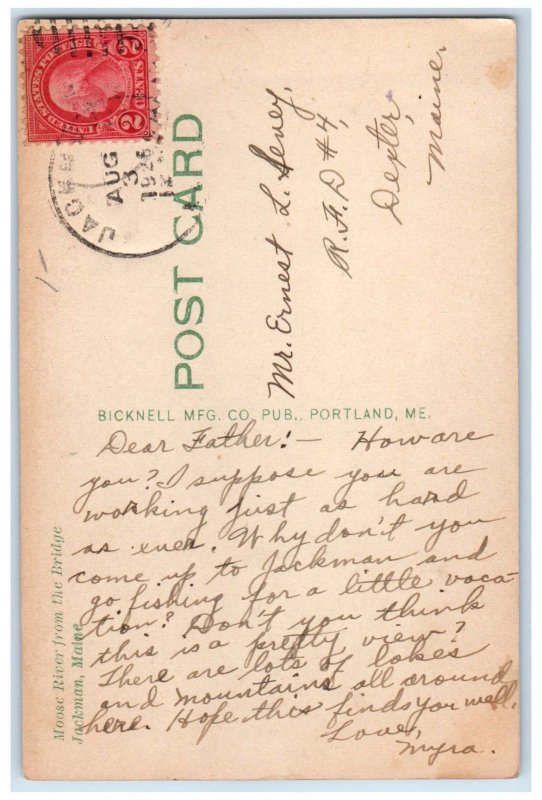 UNITED STATES POSTAGE
2 CENTS 2
JACKM
AUG
3
1926
POST CARD
Mr. Ernest L.
R.F.D #4,
Dexter,
Maine.
BICKNELL MFG. CO. PUB., PORTLAND, ME.
Moose River from the Bridge
Jackman, Maine
Dear Father:- How are
you? I suppose you are
working just as hard
as ever. Why don't you
come up to Jackman and
go fishing for a little vaca-
tion? Don't you think
this is a pretty view?
There are lots of lakes
and mountains all around
here. Hope this finds you well.
Love,
Myra.